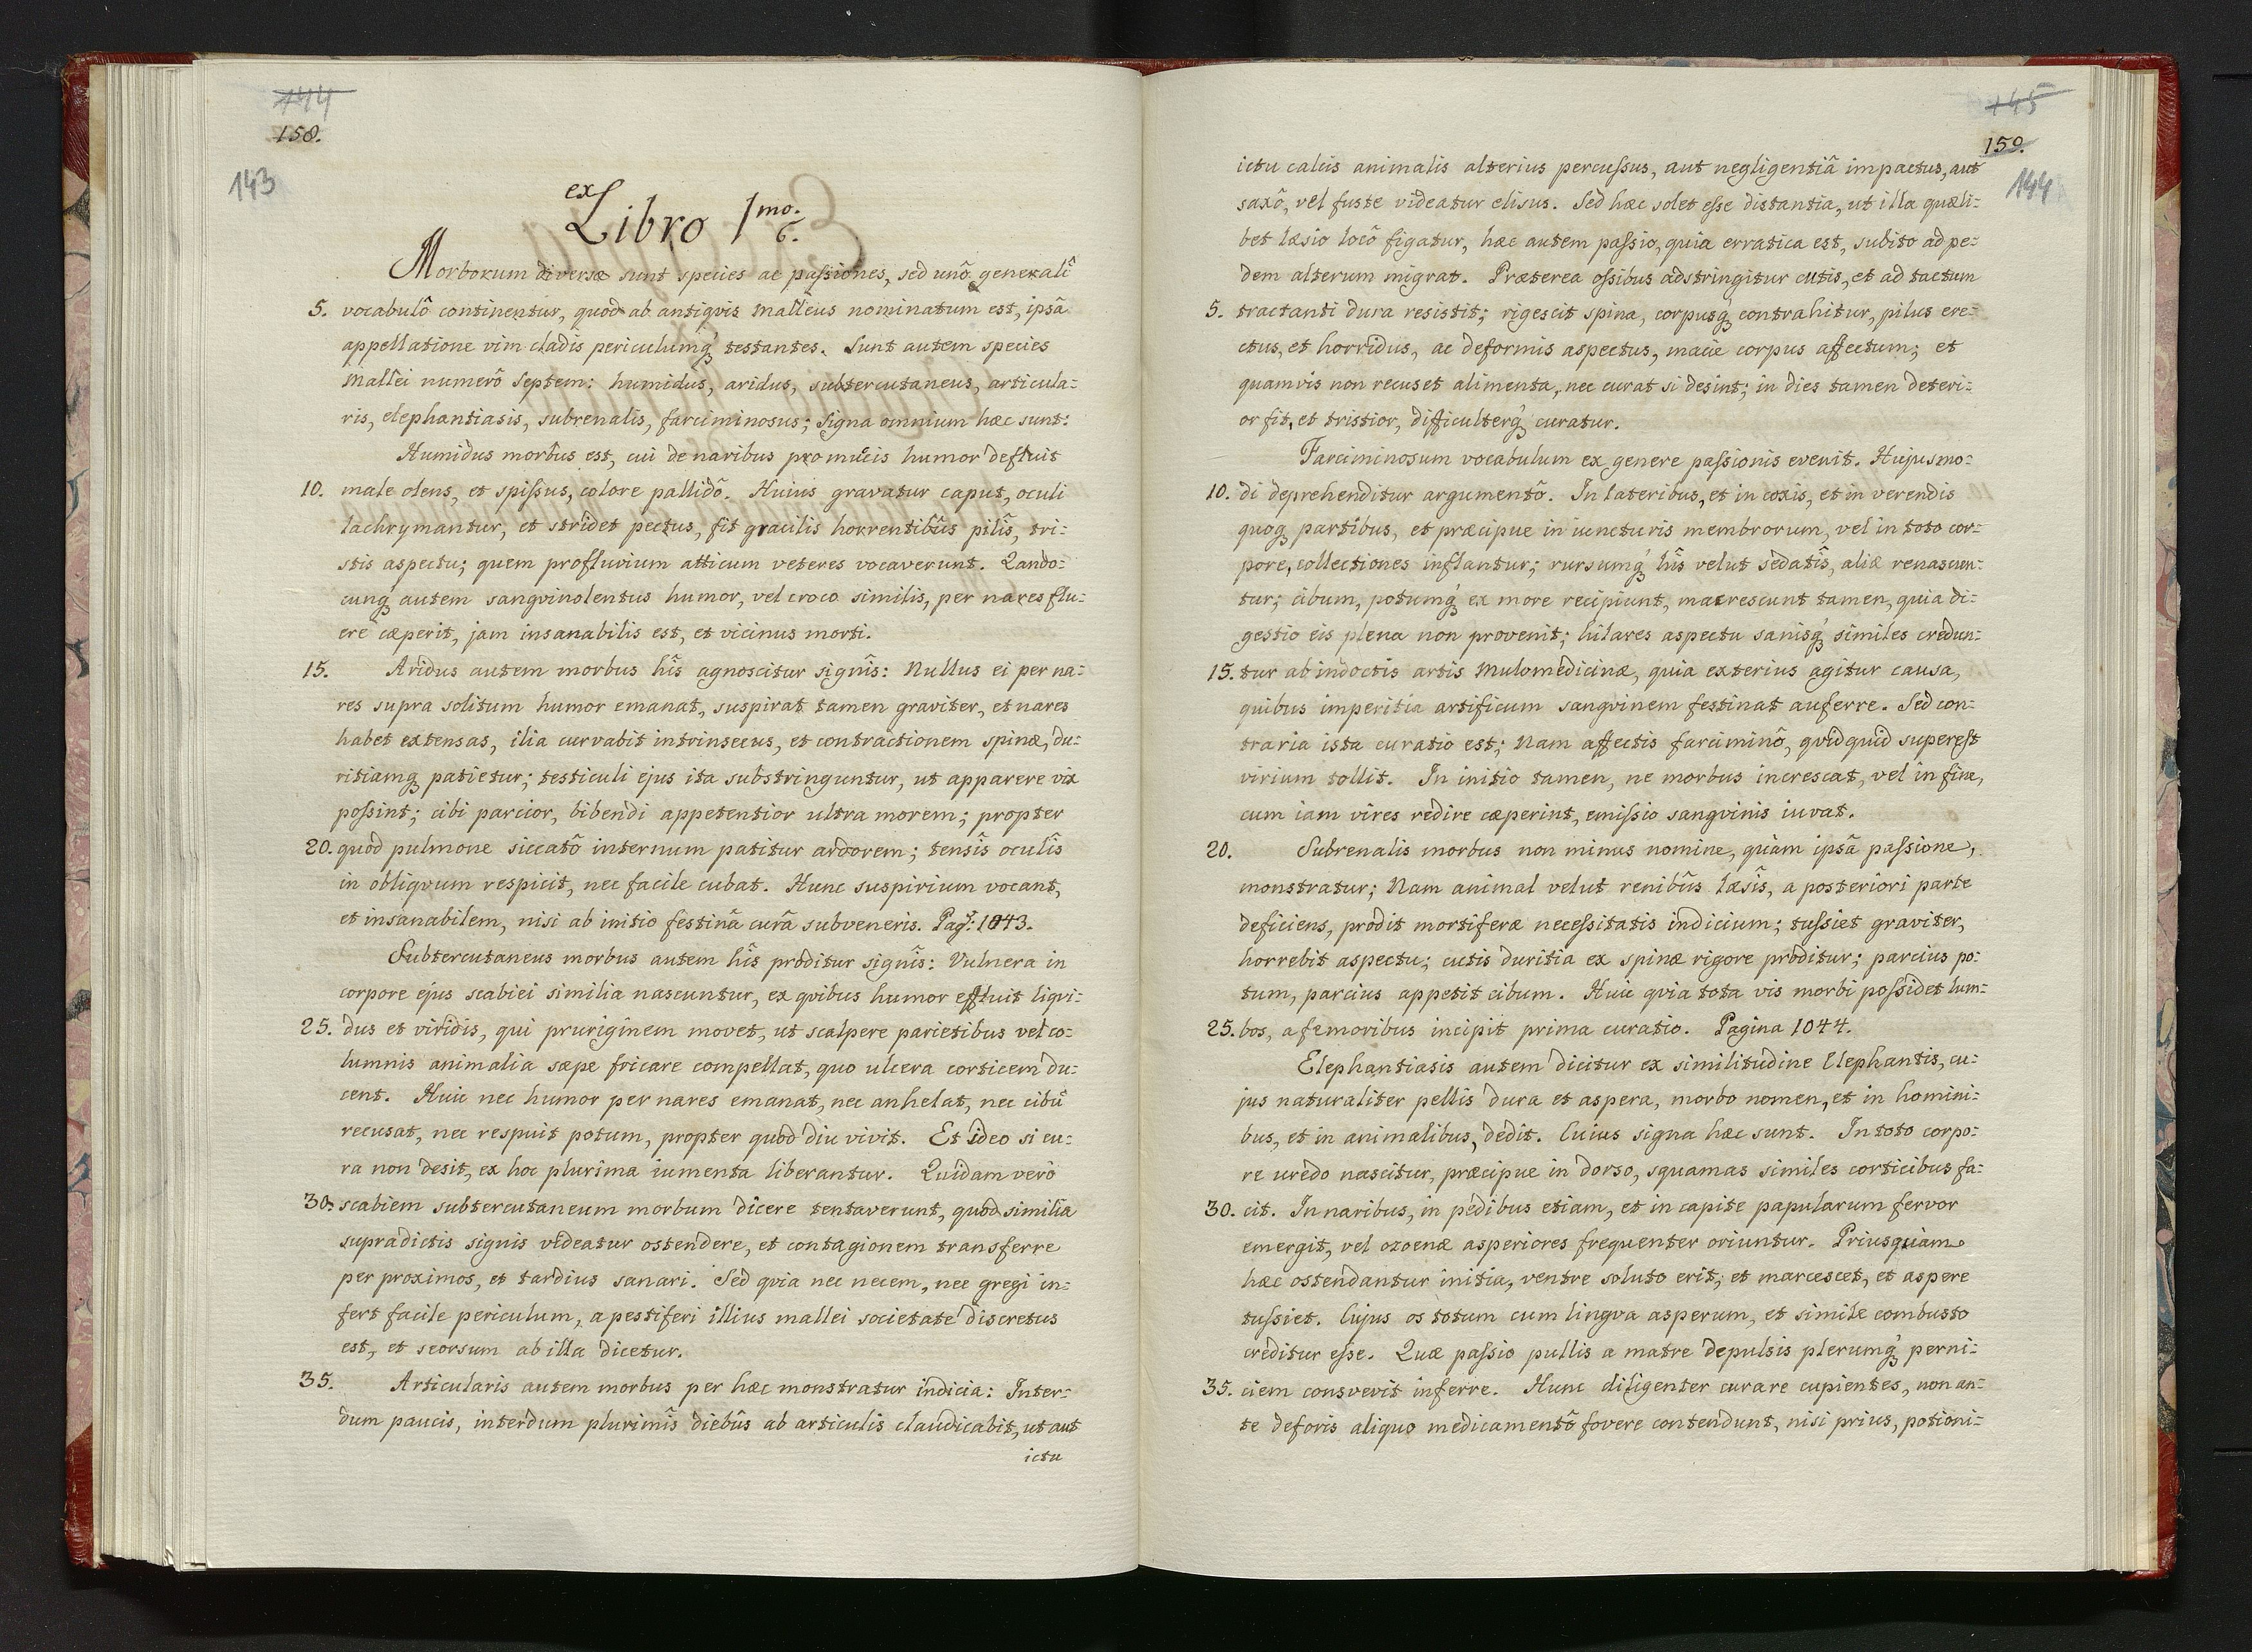 144
158.
143
ex
Libro 1mo.
6.
Morborum diversæ sunt species ac paſsiones, sed unô generalî
5. vocabulô continentur, quod ab antiqvis Malleus nominatum est, ipsâ
appellatione vim cladis periculumq́ testantes. Sunt autem species
Mallei numerô Septem: humidus, aridus, subtercutaneus, articula:
ris, elephantiasis, subrenalis, farciminosus; Signa omnium hæc sunt:
Humidus morbus est, cui de naribus pro mucis humor defluit
10. male olens, et spiſsus, colore pallidô. Huius gravatur caput, oculi
lachrymantur, et stridet pectus, fit gracilis horrentibûs pilîs, tri:
stis aspectu; quem profluvium atticum veteres vocaverunt. Qando:
cunq́ autem sangvinolentus humor, vel croco similis, per nares flu:
ere cæperit, jam insanabilis est, et vicinus morti.
15. Aridus autem morbus hîs agnoscitur signîs: Nullus ei per na:
res supra solitum humor emanat, suspirat tamen graviter, et nares
habet extensas, ilia curvabit intrinsecus, et contractionem spinæ, du:
ritiamq́ patietur; testiculi ejus ita substringuntur, ut apparere vix
poſsint; cibi parcior, bibendi appetentior ultra morem; propter
20. quod pulmone siccatô internum patitur ardorem; tensîs oculîs
in obliqvum respicit, nec facile cubat. Hunc suspirium vocant,
et insanabilem, nisi ab initio festinâ curâ subveneris. Pag: 1043.
Subtercutaneus morbus autem hîs proditur signîs: Vulnera in
corpore ejus scabiei similia nascuntur, ex qvibus humor effluit liqvi:
25. dus et viridis, qui pruriginem movet, ut scalpere parietibus vel co:
lumnis animalia sæpe fricare compellat, quo ulcera corticem du:
cent. Huic nec humor per nares emanat, nec anhelat, nec cibū
recusat, nec respuit potum, propter quod diu vivit. Et ideo si cu:
ra non desit, ex hoc plurima iumenta liberantur. Quidam verò
30. scabiem subtercutaneum morbum dicere tentaverunt, quod similia
supradictis signis videatur ostendere, et contagionem transferre
per proximos, et tardius sanari. Sed qvia nec necem, nec gregi in:
fert facile periculum, a pestiferi illius mallei societate discretus
est, et seorsum ab illa dicetur.
35. Articularis autem morbus per hæc monstratur indicia: Inter:
dum paucis, interdum plurimîs diebûs ab articulis claudicabit, ut aut
ictu
145
159.
144
ictu calcis animalis alterius percuſsus, aut negligentiâ impactus, aut
saxô, vel fuste videatur elisus. Sed hæc solet eſse distantia, ut illa quæli:
bet læsio locô figatur, hæc autem paſsio, quia erratica est, subito ad pe:
dem alterum migrat. Præterea oſsibus adstringitur cutis, et ad tactum
5. tractanti dura resistit; rigescit spina, corpusq́ contrahitur, pilus ere:
ctus, et horridus, ac deformis aspectus, macie corpus affectum; et
quamvis non recuset alimenta, nec curat si desint; in dies tamen deteri:
or fit, et tristior, difficulterq́ curatur.
Farciminosum vocabulum ex genere paſsionis evenit. Hujusmo:
10. di deprehenditur argumentô. In lateribus, et in coxis, et in verendis
quoq́ partibus, et præcipue in iuncturis membrorum, vel in toto cor:
pore, collectiones inflantur; rursumq́ hîs velut sedatîs, aliæ renascun:
tur; cibum, potumq́ ex more recipiunt, macrescunt tamen, quia di:
gestio eis plena non provenit; hilares aspectu sanisq́ similes credun:
15. tur ab indoctis artis Mulomedicinæ, quia exterius agitur causa,
quibus imperitia artificum sangvinem festinat auferre. Sed con:
traria ista curatio est; Nam affectis farciminô, qvidquid superest
virium tollit. In initio tamen, ne morbus increscat, vel in fine,
cum iam vires redire cæperint, emiſsio sangvinis iuvat.
20. Subrenalis morbus non minus nomine, quàm ipsâ paſsione,
monstratur; Nam animal velut renibûs læsîs, a posteriori parte
deficiens, prodit mortiferæ neceſsitatis indicium; tuſsiet graviter,
horrebit aspectu; cutis duritia ex spinæ rigore proditur; parcius po:
tum, parcius appetit cibum. Huic qvia tota vis morbi poſsidet lum:
25. bos, a femoribus incipit prima curatio. Pagina 1044.
Elephantiasis autem dicitur ex similitudine Elephantis, cu:
jus naturaliter pellis dura et aspera, morbo nomen, et in homini:
bus, et in animalibus, dedit. Cuius signa hæc sunt. In toto corpo:
re uredo nascitur, præcipue in dorso, squamas similes corticibus fa:
30. cit. In naribus, in pedibus etiam, et in capite papularum fervor
emergit, vel ozoenæ asperiores frequenter oriuntur. Priusquàm
hæc ostendantur initia, ventre soluto erit; et marcescet, et aspere
tuſsiet. Cujus os totum cum lingva asperum, et simile combusto
creditur eſse. Quæ paſsio pullis a matre depulsis plerumq́ perni:
35. ciem consvevit inferre. Hunc diligenter curare cupientes, non an:
te deforis aliquo medicamentô fovere contendunt, nisi prius, potioni: